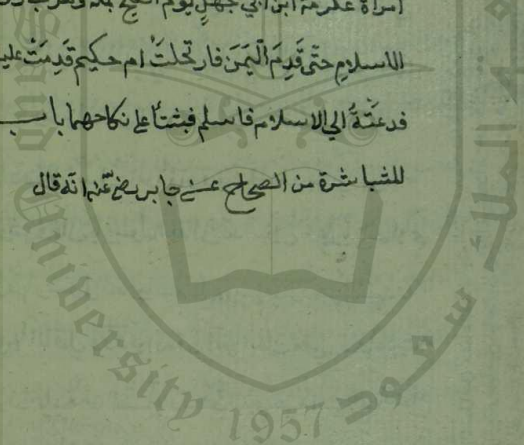 امراة عكرمة ابن ابي جهل يوم الفتح بمكة وهرب
الاسلام حتّى قَدِمَ اليَمَنَ فارتحلتْ ام حكيم قَدِمَتْ عليه
فدعتْهُ الي الاسلام فاسلم فثبتا علي نكاحهما باب
للمباشرة من الصحاح عن جابر رضي عنه انه قال
King Saud University
1957